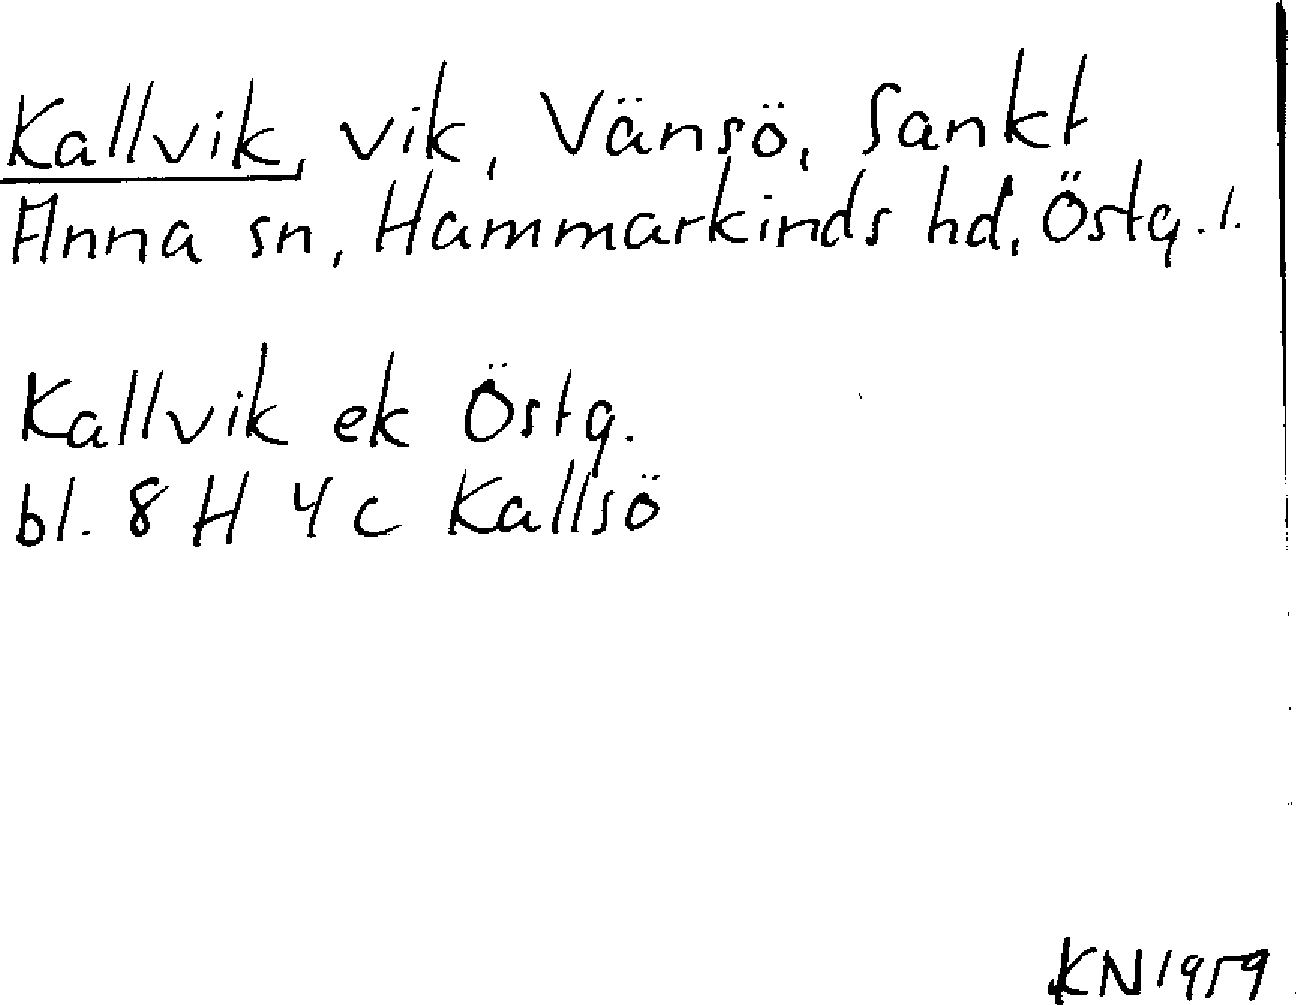 Kallvik, vik, Vänsö, Sankt
Anna sn, Hammarkinds hd, Östg. l.
Kallvik ek Östg.
bl. 8 H 4 c Kallsö
KN 1959